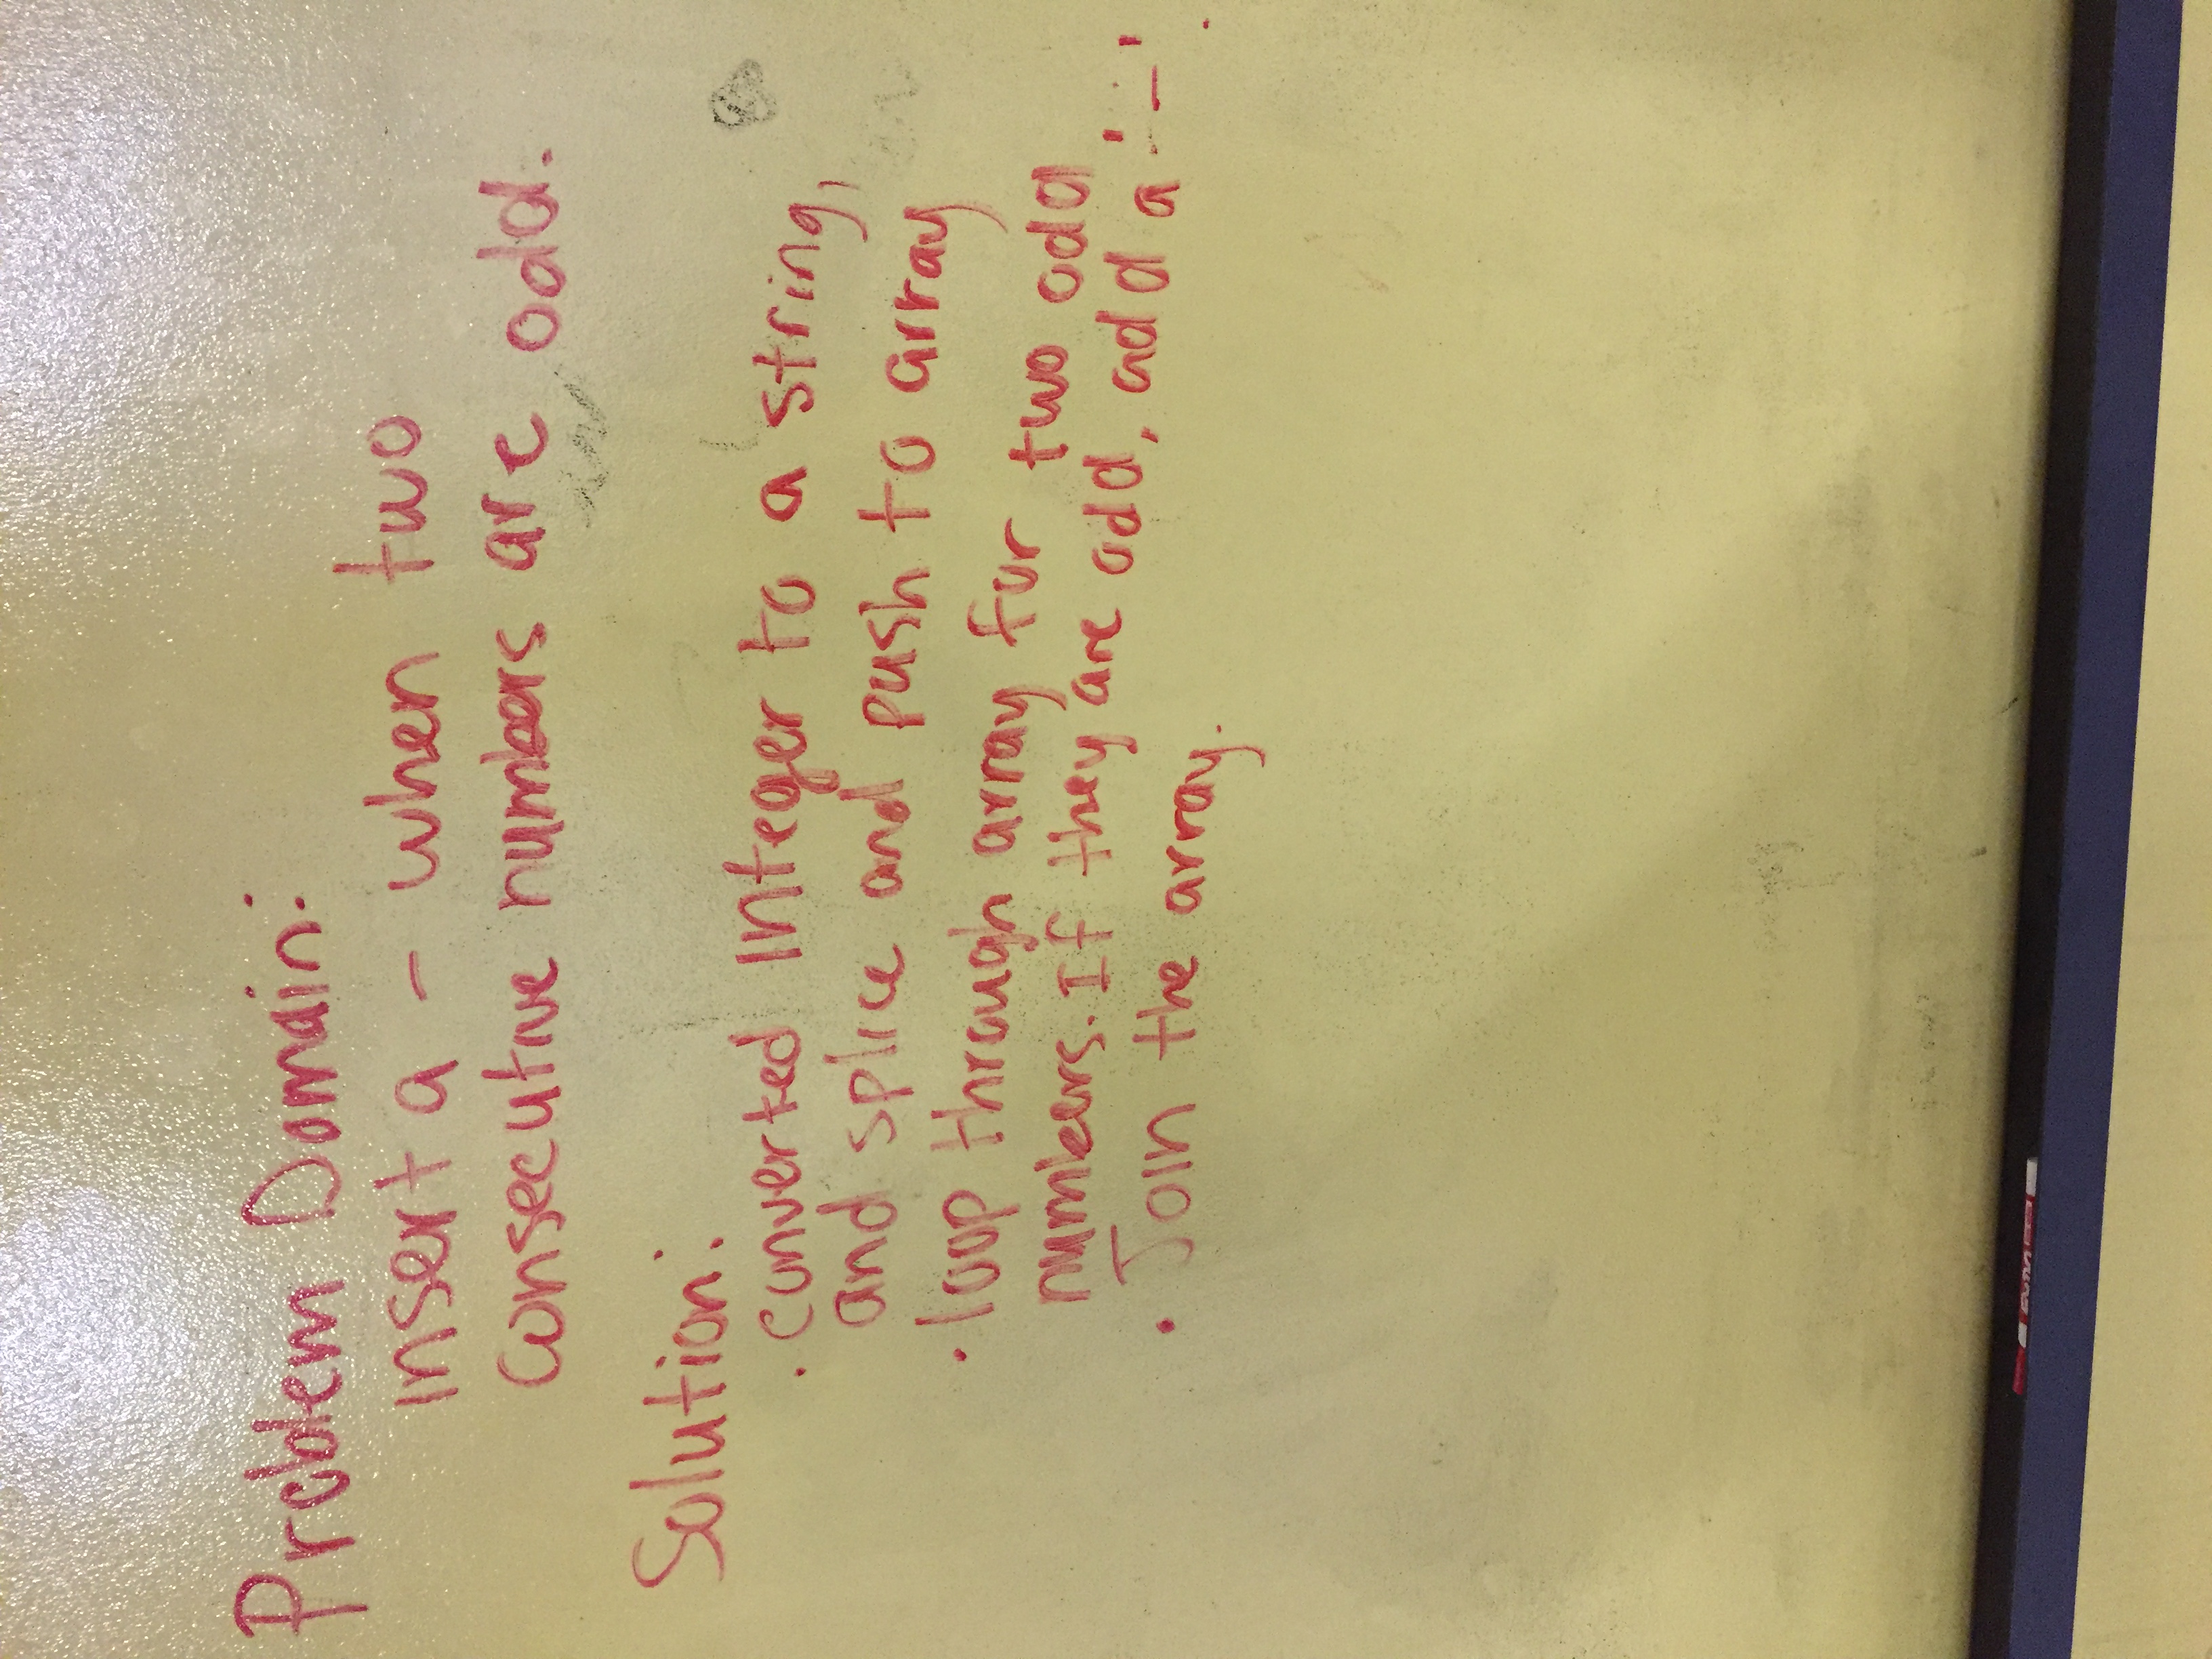 Problem Domain:
insert a - when two
consecutive numbers are odd.
Solution:
. converted Integer to a string,
and splice and push to array
. loop through array for two odd
numbers. If they are odd, add a '-'.
. Join the array.